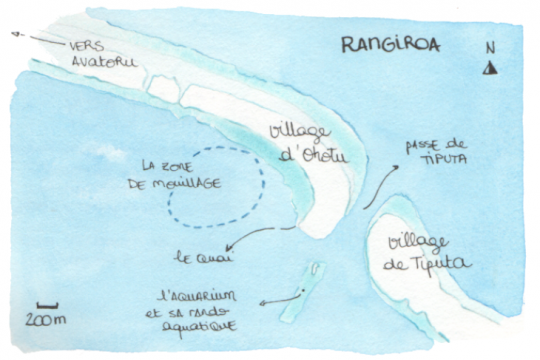 RANGIROA
N
VERS
AVATORU
village
d'Ohotu
PASSE de
TIPUTA
LA ZONE
DE MOUILLAGE
village
de Tiputa
le quai
l'AQUARIUM
et sa rando
aquatique
200m